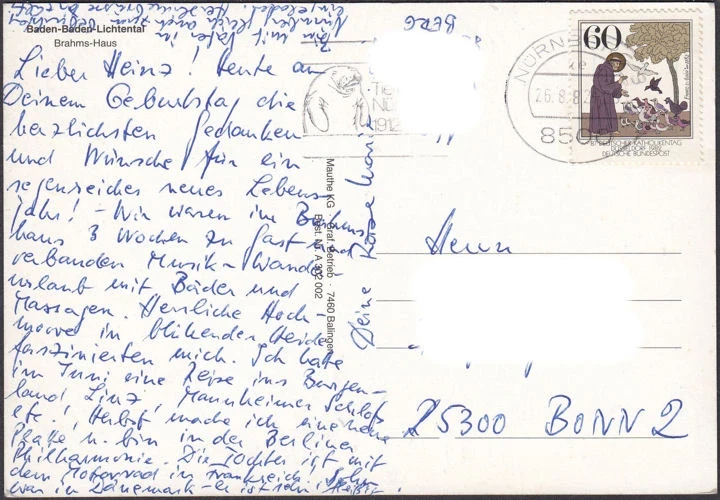 Baden-Baden-Lichtental
Brahms-Haus
Lieber Heinz! Heute an
Deinem Geburtstag die
herzlichsten Gedanken
und Wünsche für ein
segensreiches neues Lebens-
jahr! – Wir waren im Brahms
haus 3 Wochen zu Gast und
verbanden Musik – Wander-
urlaub mit Bäder und
Massagen. Herrliche Hoch-
moore in blühender Heide
faszinierten mich. Ich hatte
im Juni eine Reise ins Burgen-
land, Linz, Mannheimer Schloß
etc.! Herbst mache ich eine neue
Platte u. bin in der Berliner
Philharmonie. Die Tochter ist mit
dem Motorrad in Frankreich, Sohn
war in Dänemark – er ist schon
bin mit
Nürnberg
Deine
Mauthe KG · Graf. Betrieb · 7460 Balingen
Best. Nr. A 302 002
BERG
TIE
NÜ
1912
NÜRNB
26.8.82
8500
60
87. DEUTSCHER KATHOLIKENTAG
DÜSSELDORF 1982
DEUTSCHE BUNDESPOST
Herrn
5300 BONN 2